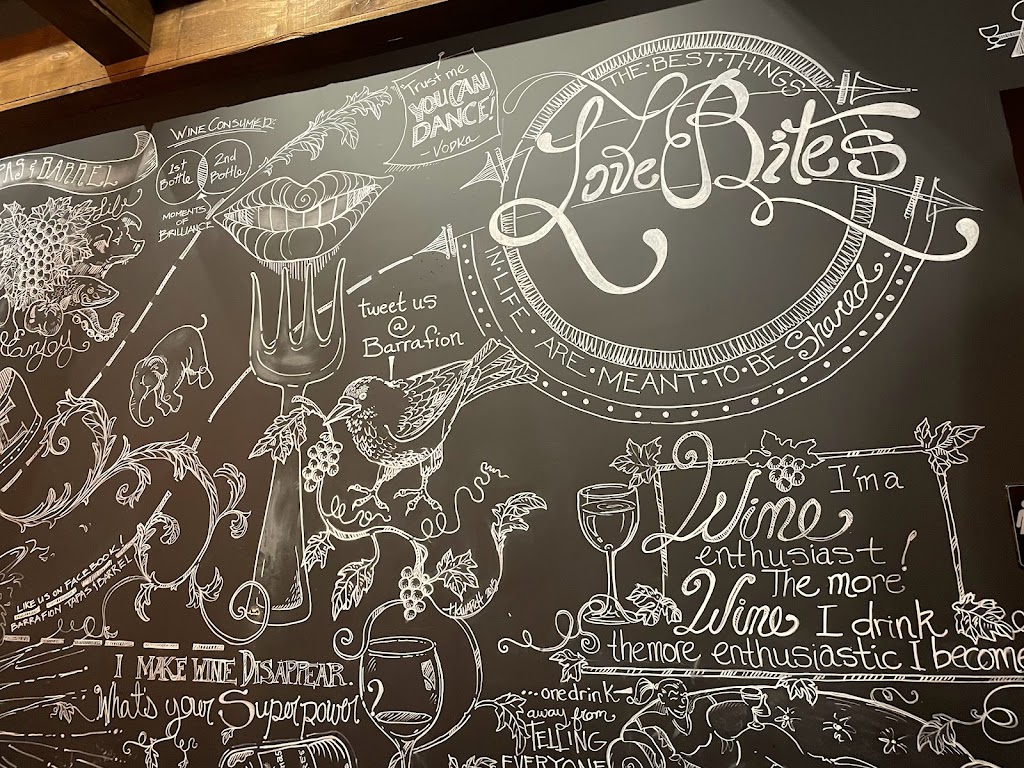 PAS & BARREL
Life
Enjoy
WINE CONSUMED:
1st
Bottle
2nd
Bottle
MOMENTS
OF
BRILLIANCE
Trust me
YOU CAN
DANCE!
- Vodka
THE · BEST · THINGS
Love Bites
IN · LIFE · ARE · MEANT · TO · BE · Shared
tweet us
@
Barrafion
LIKE US ON FACEBOOK!
BARRAFION TAPAS & BARREL
I'm a
Wine
enthusiast!
The more
Wine I drink
the more enthusiastic I become
I MAKE WINE DISAPPEAR.
What's your Superpower
...one drink
away from
TELLING
EVERYONE